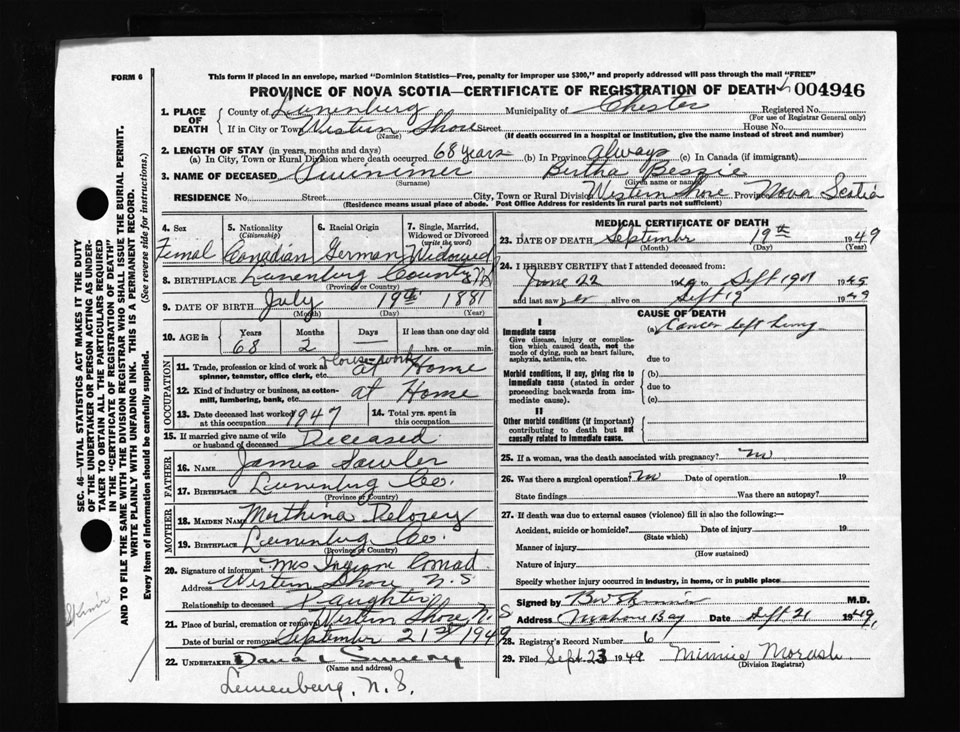 FORM 6
This form if placed in an envelope, marked "Dominion Statistics—Free, penalty for improper use $300," and properly addressed will pass through the mail "FREE"
PROVINCE OF NOVA SCOTIA—CERTIFICATE OF REGISTRATION OF DEATH 004946
1. PLACE OF DEATH
County of Lunenburg Municipality of Chester Registered No.
(For use of Registrar General only)
If in City or Town Western Shore Street House No.
(Name) (If death occurred in a hospital or institution, give the name instead of street and number)
2. LENGTH OF STAY (in years, months and days)
(a) In City, Town or Rural Division where death occurred 68 years (b) In Province always (c) In Canada (if immigrant)
3. NAME OF DECEASED Swinimer Bertha Bessie
(Surname) (Given name or names)
RESIDENCE No. Street City, Town or Rural Division Western Shore Province Nova Scotia
(Residence means usual place of abode. Post Office Address for residents in rural parts not sufficient)
4. Sex 5. Nationality (Citizenship) 6. Racial Origin 7. Single, Married, Widowed or Divorced (write the word)
Femal Canadian German Widowed
8. BIRTHPLACE Lunenburg County N.S.
(Province or Country)
9. DATE OF BIRTH July 19th 1881
(Month) (Day) (Year)
10. AGE in Years Months Days If less than one day old
68 2 — hrs. or min.
OCCUPATION
11. Trade, profession or kind of work as spinner, teamster, office clerk, etc. House-work at Home
12. Kind of industry or business, as cotton-mill, lumbering, bank, etc. at Home
13. Date deceased last worked at this occupation 1947
14. Total yrs. spent in this occupation
15. If married give name of wife or husband of deceased Deceased
FATHER
16. NAME James Sawler
17. BIRTHPLACE Lunenburg Co.
(Province or Country)
MOTHER
18. MAIDEN NAME Delorey
19. BIRTHPLACE Lunenburg Co.
(Province or Country)
20. Signature of informant Mrs Conrad
Address Western Shore N.S
Relationship to deceased Daughter
21. Place of burial, cremation or removal Western Shore N.S
Date of burial or removal September 21st 1949
22. UNDERTAKER Sweeny
(Name and address)
Lunenburg, N.S.
MEDICAL CERTIFICATE OF DEATH
23. DATE OF DEATH September 19th 1949
(Month) (Day) (Year)
24. I HEREBY CERTIFY that I attended deceased from:
June 22 1949 to Sept 19th
and last saw her alive on Sept 19 1949
CAUSE OF DEATH
I
Immediate cause (a) Cancer left lung
Give disease, injury or complication which caused death, not the mode of dying, such as heart failure, asphyxia, asthenia, etc.
due to
Morbid conditions, if any, giving rise to immediate cause (stated in order proceeding backwards from immediate cause).
(b)
due to
(c)
II
Other morbid conditions (if important) contributing to death but not causally related to immediate cause.
25. If a woman, was the death associated with pregnancy? no
26. Was there a surgical operation? no Date of operation 19
State findings Was there an autopsy?
27. If death was due to external causes (violence) fill in also the following:—
Accident, suicide or homicide? Date of injury 19
(State which)
Manner of injury
(How sustained)
Nature of injury
Specify whether injury occurred in industry, in home, or in public place
Signed by M.D.
Address Mahone Bay Date Sept 21 1949
28. Registrar's Record Number 6
29. Filed Sept. 23 1949 Minnie Morash
(Division Registrar)
SEC. 46—VITAL STATISTICS ACT MAKES IT THE DUTY
OF THE UNDERTAKER OR PERSON ACTING AS UNDER-
TAKER TO OBTAIN ALL THE PARTICULARS REQUIRED
IN THE "CERTIFICATE OF REGISTRATION OF DEATH"
AND TO FILE THE SAME WITH THE DIVISION REGISTRAR WHO SHALL ISSUE THE BURIAL PERMIT.
WRITE PLAINLY WITH UNFADING INK. THIS IS A PERMANENT RECORD.
Every item of information should be carefully supplied. (See reverse side for instructions.)